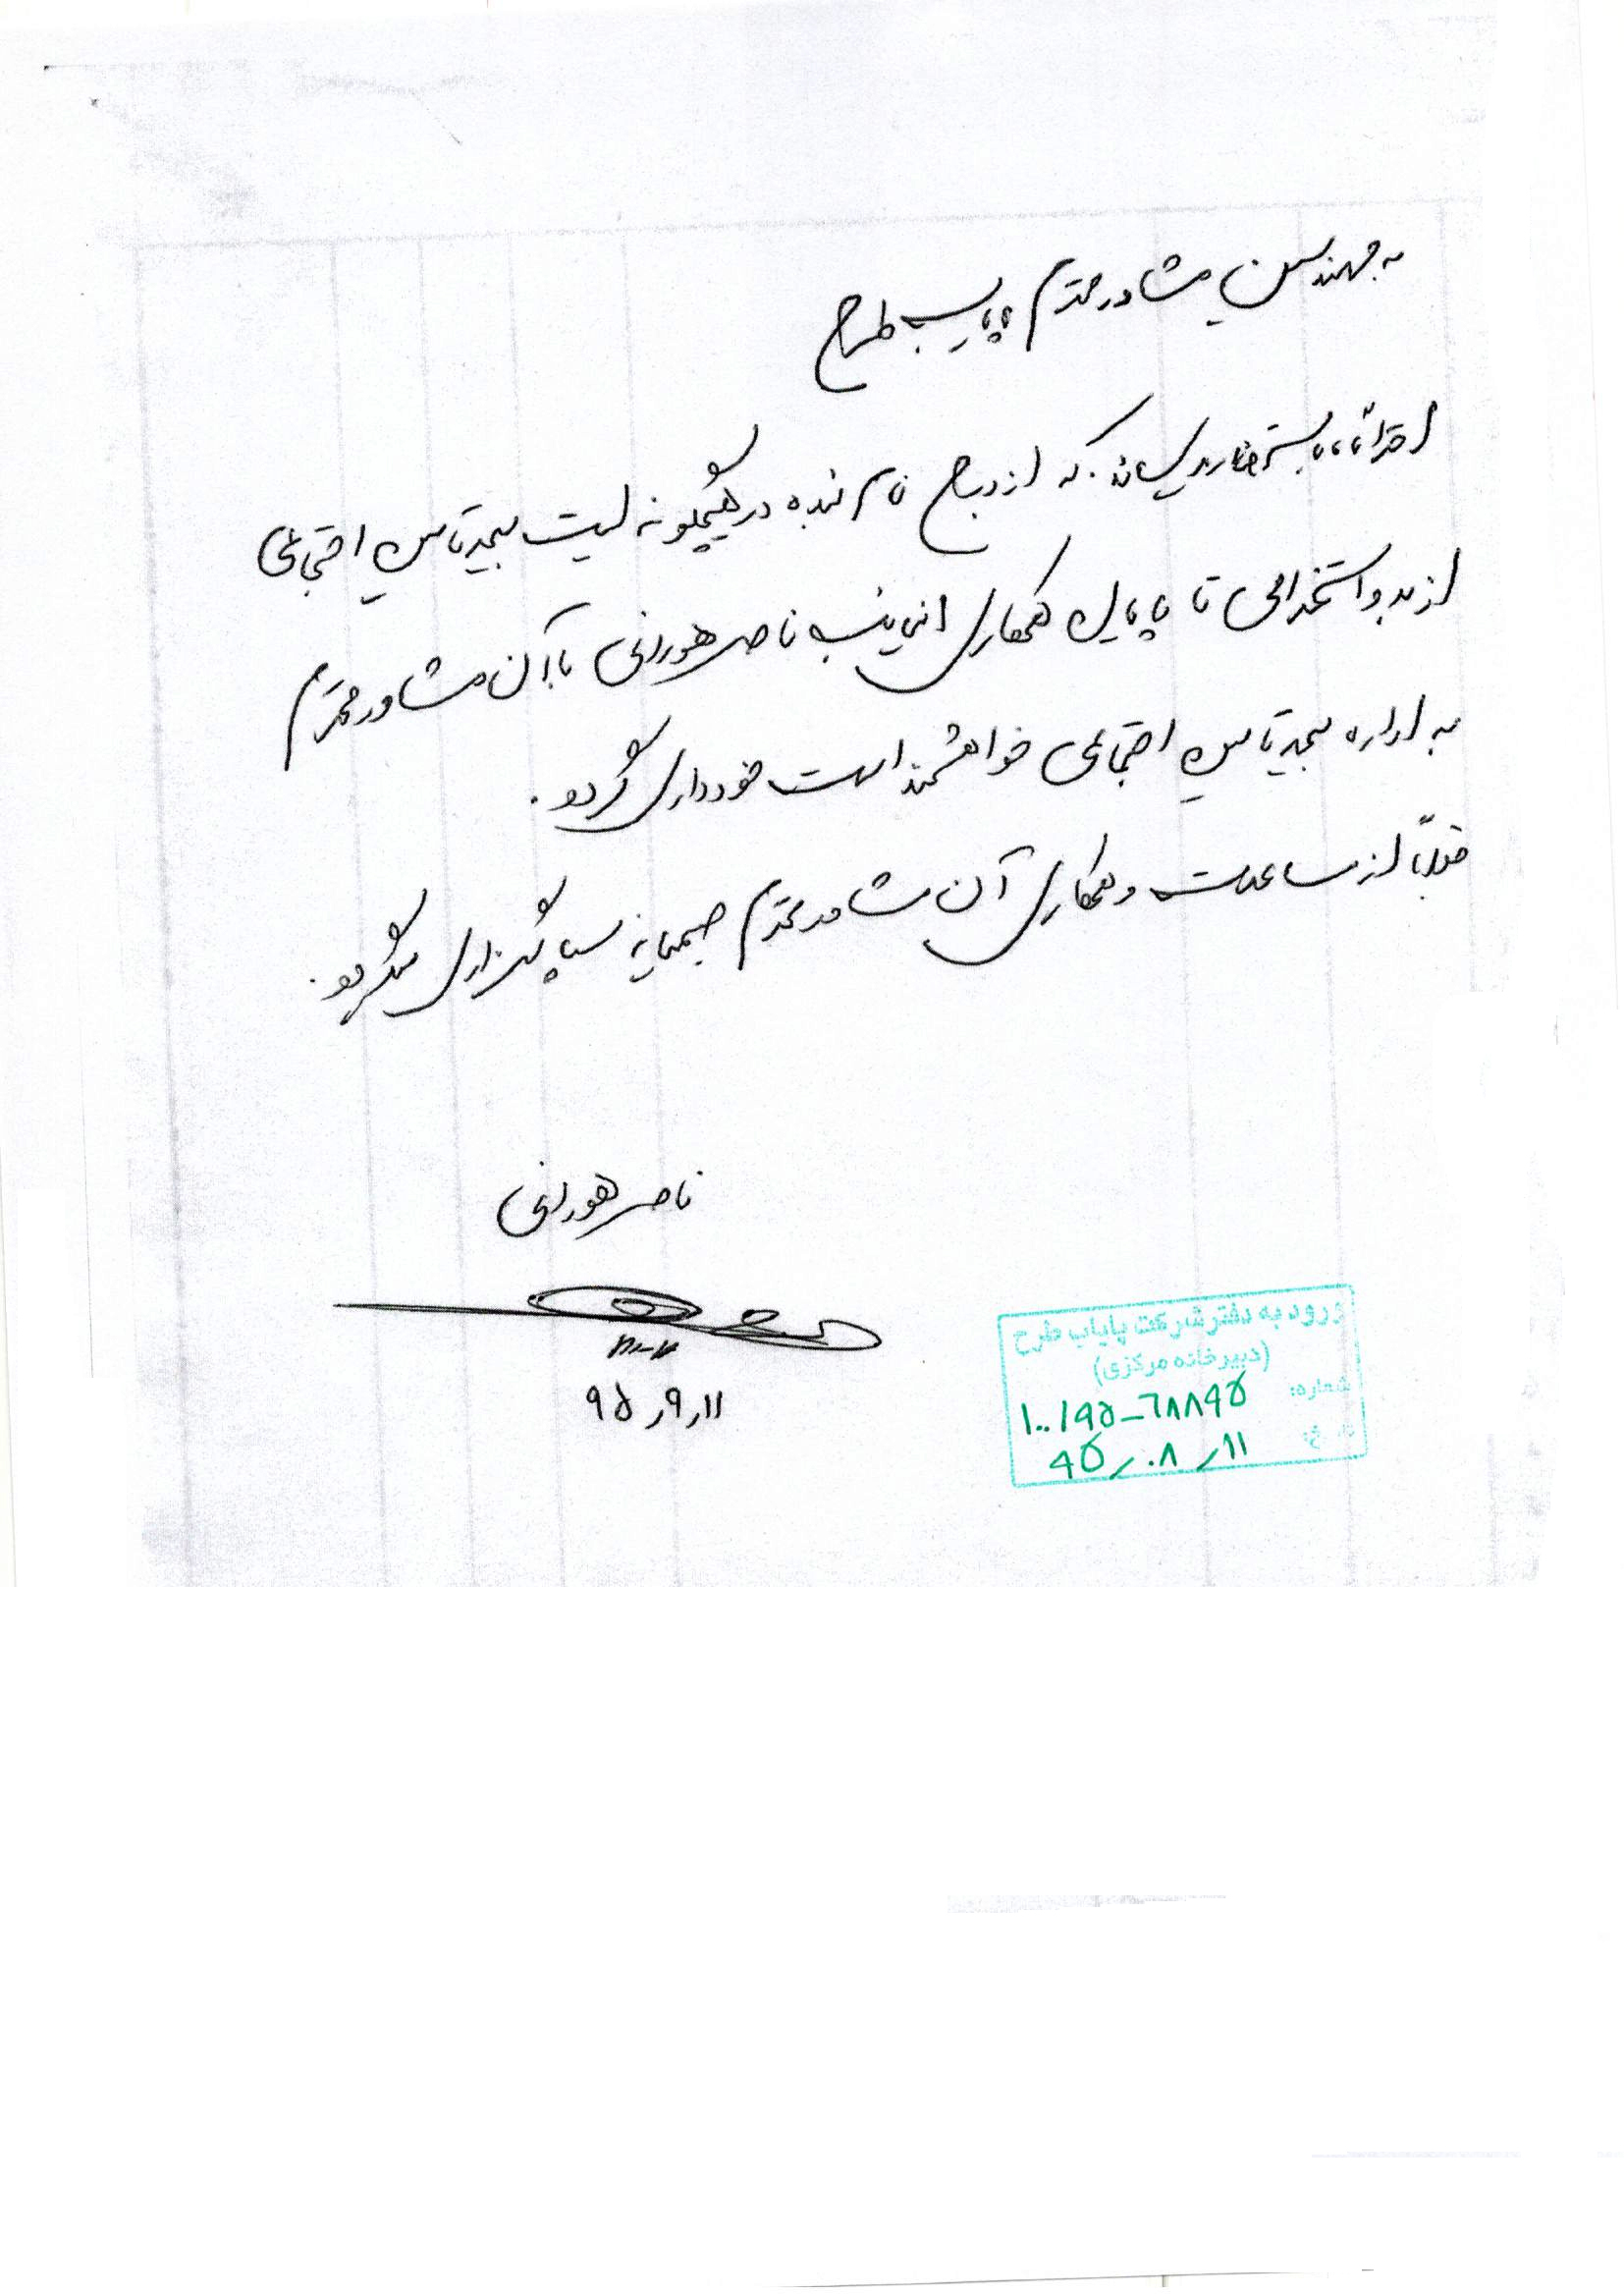 به مهندسین مشاور محترم پایاب طرح
احتراماً، باستحضار میرساند که از درج نام بنده در هیچگونه لیست بیمه تامین اجتماعی
از بدو استخدامی تا پایان همکاری اینجانب ناصر هورانی با آن مشاور محترم
به اداره بیمه تامین اجتماعی خواهشمند است خودداری گردد.
قبلاً از مساعدت و همکاری آن مشاور محترم صمیمانه سپاسگزاری میگردد.
ناصر هورانی
۹۵٫۹٫۱۱
ورود به دفتر شرکت پایاب طرح
(دبیرخانه مرکزی)
شماره: ۱۰۰/۹۵-۶۸۸۹۵
تاریخ: ۹۵٫۰۸٫۱۱